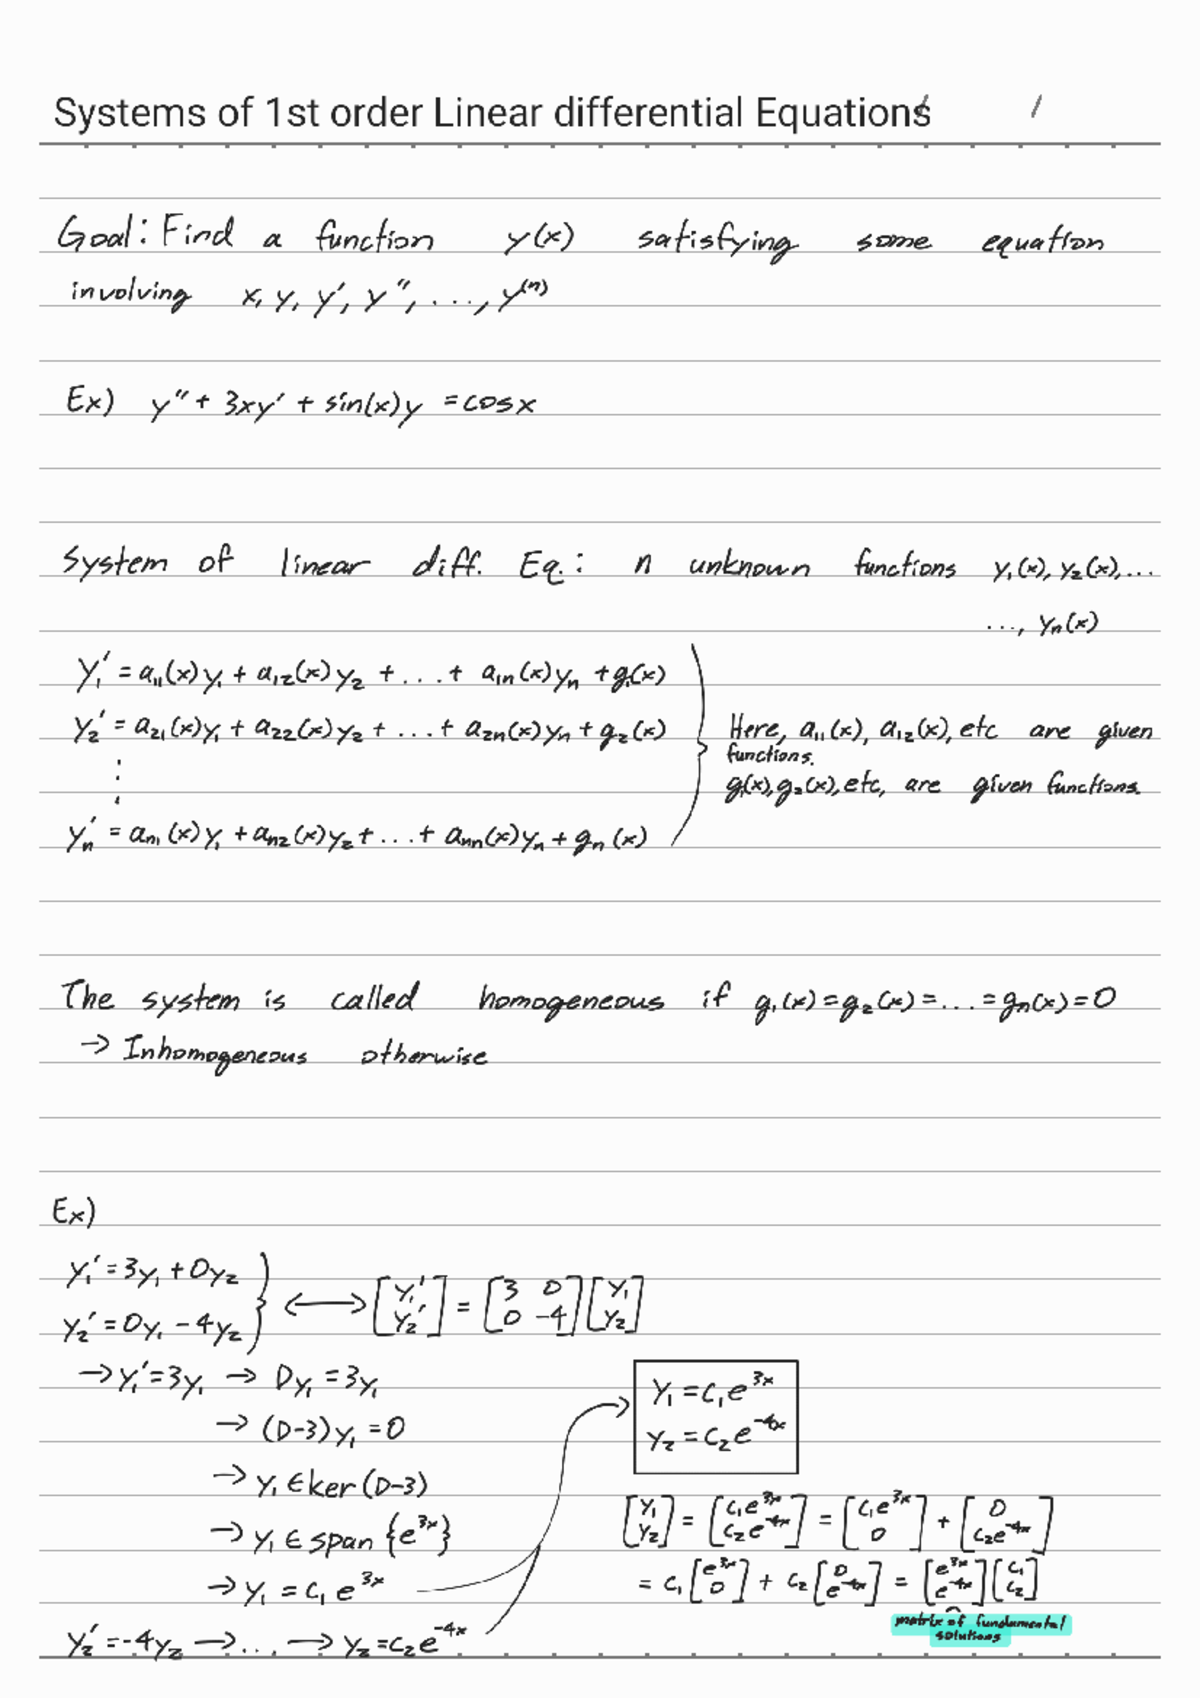 Systems of 1st order Linear differential Equations
Goal: Find a function y(x) satisfying some equation
involving x, y, y', y'', ..., y⁽ⁿ⁾
Ex) y'' + 3xy' + sin(x)y = cosx
System of linear diff. Eq.: n unknown functions y₁(x), y₂(x), ...
..., yₙ(x)
y₁' = a₁₁(x)y₁ + a₁₂(x)y₂ + ... + a₁ₙ(x)yₙ + g₁(x)
y₂' = a₂₁(x)y₁ + a₂₂(x)y₂ + ... + a₂ₙ(x)yₙ + g₂(x)
⋮
yₙ' = aₙ₁(x)y₁ + aₙ₂(x)y₂ + ... + aₙₙ(x)yₙ + gₙ(x)
Here, a₁₁(x), a₁₂(x), etc are given
functions.
g₁(x), g₂(x), etc, are given functions.
The system is called homogeneous if g₁(x) = g₂(x) = ... = gₙ(x) = 0
→ Inhomogeneous otherwise
Ex)
y₁' = 3y₁ + 0y₂
y₂' = 0y₁ - 4y₂
⟷ [y₁' y₂'] = [3 0 0 -4] [y₁ y₂]
→ y₁' = 3y₁ → Dy₁ = 3y₁
→ (D-3)y₁ = 0
→ y₁ ∈ ker(D-3)
→ y₁ ∈ span {e³ˣ}
→ y₁ = c₁e³ˣ
y₂' = -4y₂ → ... → y₂ = c₂e⁻⁴ˣ
y₁ = c₁e³ˣ
y₂ = c₂e⁻⁴ˣ
[y₁ y₂] = [c₁e³ˣ c₂e⁻⁴ˣ] = [c₁e³ˣ 0] + [0 c₂e⁻⁴ˣ]
= c₁[e³ˣ 0] + c₂[0 e⁻⁴ˣ] = [e³ˣ e⁻⁴ˣ] [c₁ c₂]
matrix of fundamental
solutions